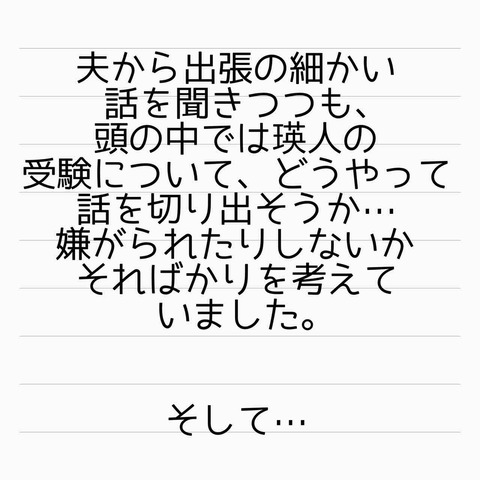 夫から出張の細かい
話を聞きつつも、
頭の中では瑛人の
受験について、どうやって
話を切り出そうか…
嫌がられたりしないか
そればかりを考えて
いました。
そして…